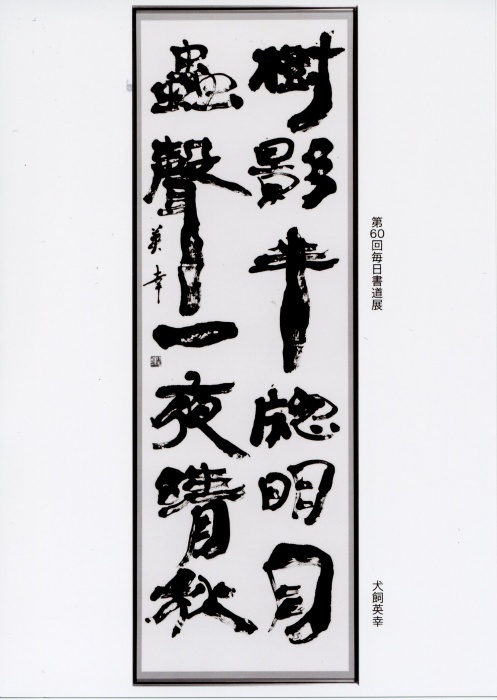 第60回毎日書道展
犬飼英幸
樹影半牕明月
蟲聲一夜晴秋
英幸